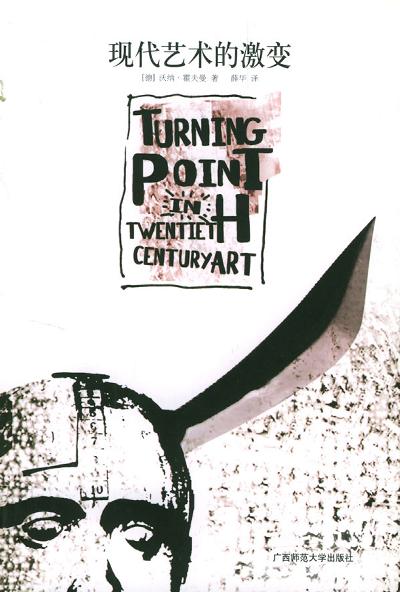 现代艺术的激变
[德] 沃纳·霍夫曼 著 薛华 译
TURNING
POINT
IN
TWENTIETH
CENTURY ART
广西师范大学出版社